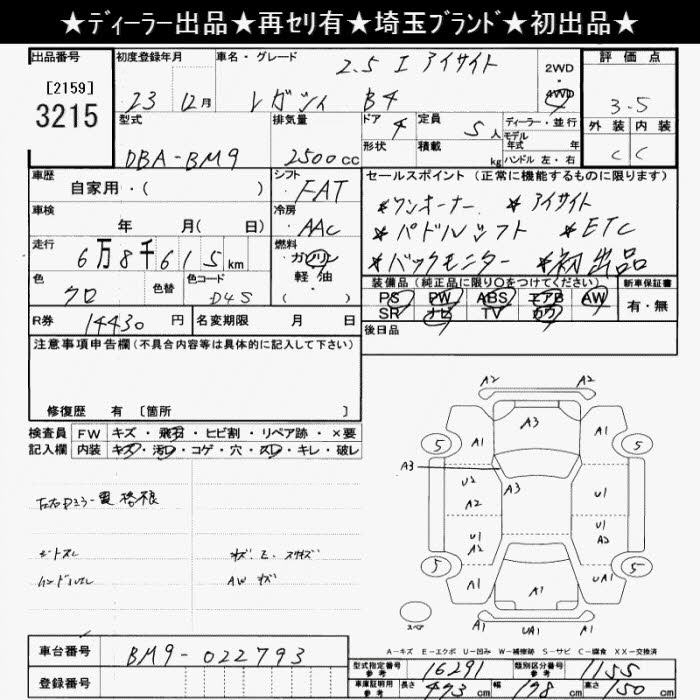 ★ディーラー出品★再セリ有★埼玉ブランド★初出品★
出品番号 初度登録年月 車名・グレード 評価点
[2159]
3215
23 12月
2.5 I アイサイト
レガシィ B4
2WD・4WD
3.5
外装 内装
C C
型式 排気量 ドア 4 定員 5人 ディーラー・並行
DBA-BM9 2500cc
形状 積載 kg
モデル年式 年
ハンドル 左・右
車歴 シフト セールスポイント (正常に機能するものに限ります)
自家用・( )
FAT
★ワンオーナー ★アイサイト
車検 冷房
年 月( 日)
AAC
★パドルシフト ★ETC
走行 燃料
6万8千615km
ガソリン
軽・油
★バックモニター ★初出品
色 色替 色コード
クロ D4S
装備品 (純正品に限り○をつけてください) 新車保証書
PS PW ABS エアB AW
SR ナビ TV カワ
有・無
R券 14430円 名変期限 月 日
後日品
注意事項申告欄(不具合内容等は具体的に記入して下さい)
修復歴 有 [箇所 ]
検査員 FW キズ・飛石・ヒビ割・リペア跡・×要
記入欄 内装 キズ・汚レ・コゲ・穴・スレ・キレ・破レ
シートスレ
ハンドルスレ
AW キズ
A2 A2
A3
A1 A1
5 5
A3
U2
A2
A3
U1
U1
A2
U1
A2
5 5
A1 A1 UA1
A1 A1
スペア
A-キズ E-エクボ U-凹み W-補修跡 S-サビ C-腐食 XX-交換済
車台番号 BM9-022793
型式指定番号 参考 16291 類別区分番号 参考 1155
登録番号
車庫証明用 参考 長さ 473cm 幅 178cm 高さ 150cm